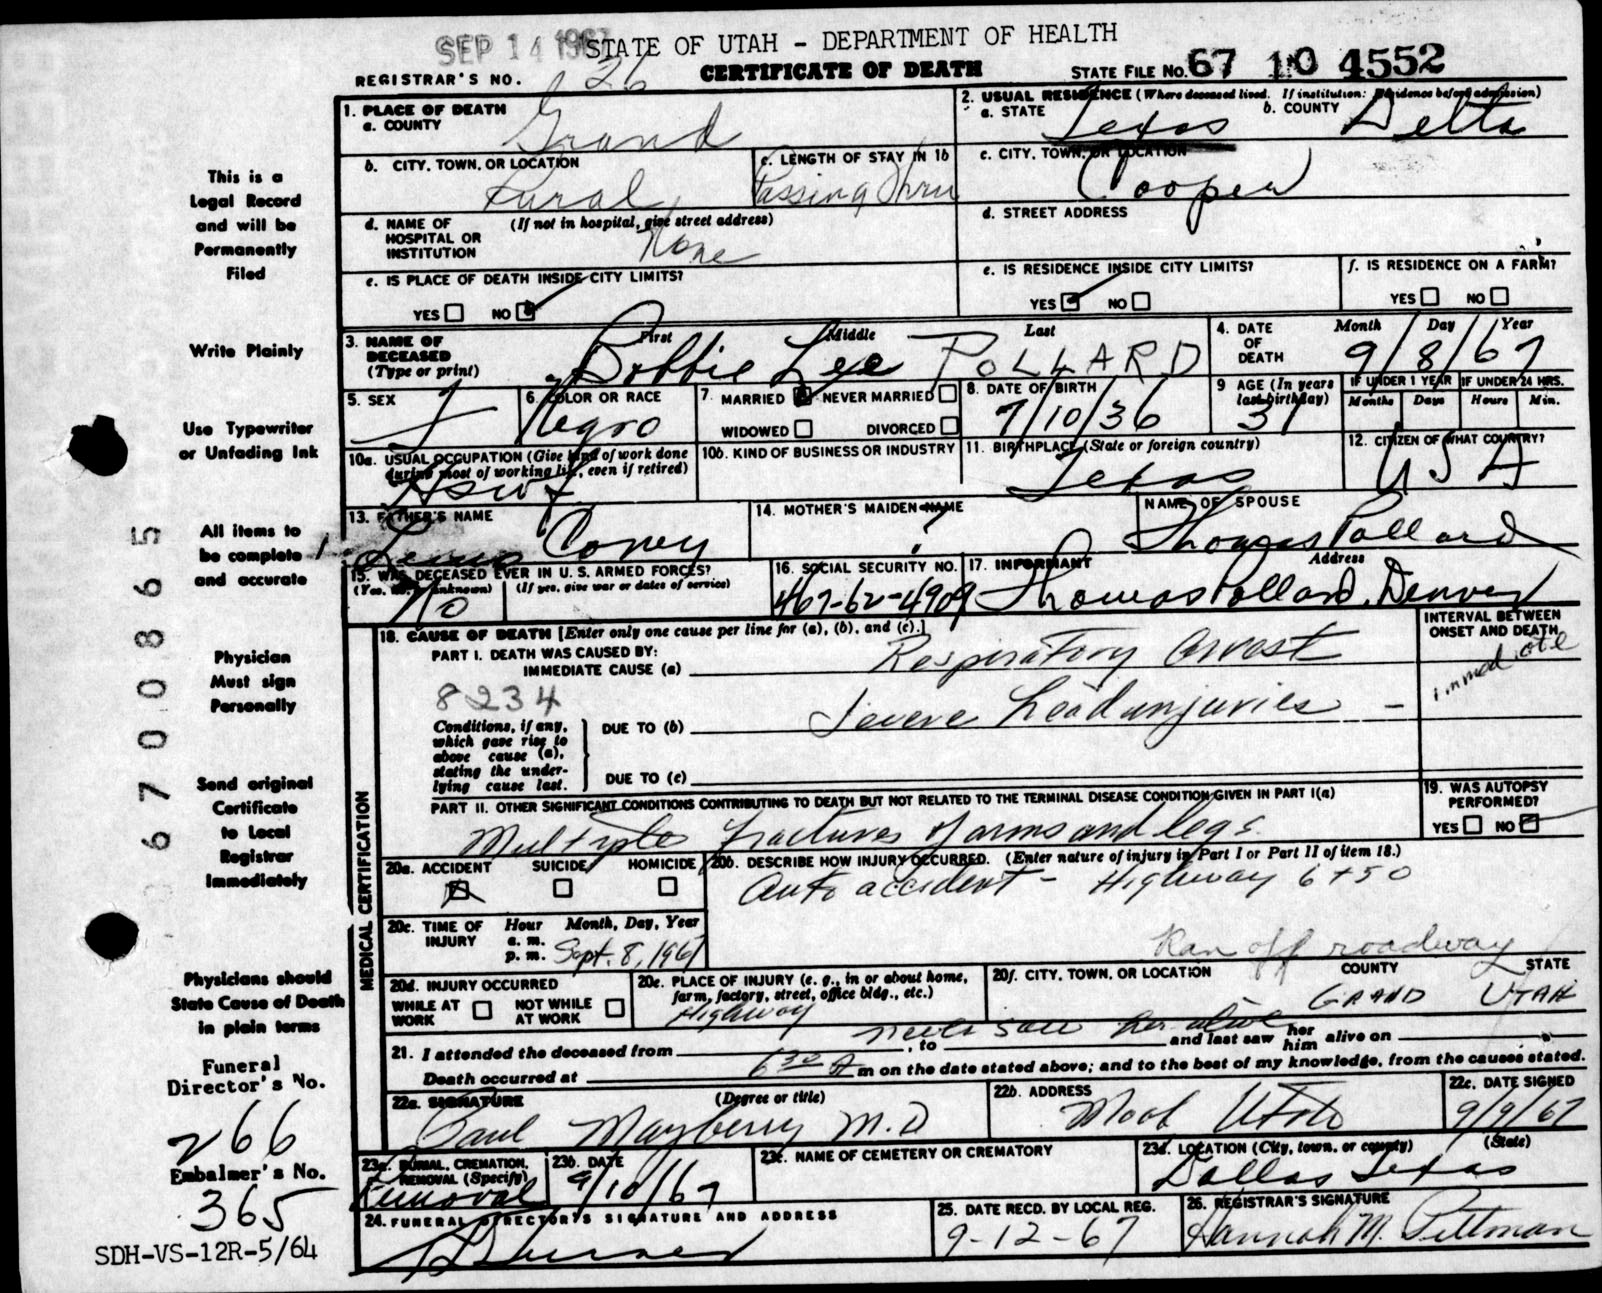 SEP 14 1967 STATE OF UTAH - DEPARTMENT OF HEALTH
REGISTRAR'S NO. 26 CERTIFICATE OF DEATH STATE FILE NO. 67 10 4552
1. PLACE OF DEATH
a. COUNTY Grand
2. USUAL RESIDENCE (Where deceased lived. If institution: Residence before admission)
a. STATE Texas b. COUNTY Delta
b. CITY, TOWN, OR LOCATION Rural
c. LENGTH OF STAY IN 1b Passing Thru
c. CITY, TOWN, OR LOCATION Cooper
d. NAME OF HOSPITAL OR INSTITUTION (If not in hospital, give street address) None
d. STREET ADDRESS
e. IS PLACE OF DEATH INSIDE CITY LIMITS?
YES NO
e. IS RESIDENCE INSIDE CITY LIMITS?
YES NO
f. IS RESIDENCE ON A FARM?
YES NO
3. NAME OF DECEASED (Type or print) First Middle Last
Bobbie Lee POLLARD
4. DATE OF DEATH Month Day Year
9/8/67
5. SEX F
6. COLOR OR RACE Negro
7. MARRIED NEVER MARRIED
WIDOWED DIVORCED
8. DATE OF BIRTH 7/10/36
9 AGE (In years last birthday) 31
IF UNDER 1 YEAR IF UNDER 24 HRS.
Months Days Hours Min.
10a. USUAL OCCUPATION (Give kind of work done during most of working life, even if retired) Hswf
10b. KIND OF BUSINESS OR INDUSTRY
11. BIRTHPLACE (State or foreign country) Texas
12. CITIZEN OF WHAT COUNTRY? USA
13. FATHER'S NAME Coney
14. MOTHER'S MAIDEN NAME ?
NAME OF SPOUSE Thomas Pollard
15. WAS DECEASED EVER IN U. S. ARMED FORCES?
(Yes, no, or unknown) (If yes, give war or dates of service) No
16. SOCIAL SECURITY NO. 467-62-4909
17. INFORMANT Address
Thomas Pollard, Denver
18. CAUSE OF DEATH [Enter only one cause per line for (a), (b), and (c).]
INTERVAL BETWEEN ONSET AND DEATH
PART I. DEATH WAS CAUSED BY:
IMMEDIATE CAUSE (a) Respiratory Arrest immediate
8234
Conditions, if any, which gave rise to above cause (a), stating the underlying cause last.
DUE TO (b) Severe head injuries -
DUE TO (c)
PART II. OTHER SIGNIFICANT CONDITIONS CONTRIBUTING TO DEATH BUT NOT RELATED TO THE TERMINAL DISEASE CONDITION GIVEN IN PART I(a)
Multiple fractures of arms and legs.
19. WAS AUTOPSY PERFORMED?
YES NO
MEDICAL CERTIFICATION
20a. ACCIDENT SUICIDE HOMICIDE
20b. DESCRIBE HOW INJURY OCCURRED. (Enter nature of injury in Part I or Part II of item 18.)
Auto accident - Highway 6+50
Ran off roadway
20c. TIME OF INJURY Hour Month, Day, Year
a. m.
p. m. Sept. 8, 1967
20d. INJURY OCCURRED
WHILE AT WORK NOT WHILE AT WORK
20e. PLACE OF INJURY (e. g., in or about home, farm, factory, street, office bldg., etc.)
Highway
20f. CITY, TOWN, OR LOCATION COUNTY STATE
GRAND UTAH
21. I attended the deceased from never saw her alive, to and last saw her him alive on
Death occurred at 6 30 A m on the date stated above; and to the best of my knowledge, from the causes stated.
22a. SIGNATURE (Degree or title)
Paul Mayberry M.D
22b. ADDRESS Moab Utah
22c. DATE SIGNED 9/9/67
23a. BURIAL, CREMATION, REMOVAL (Specify) Removal
23b. DATE 9/10/67
23c. NAME OF CEMETERY OR CREMATORY
23d. LOCATION (City, town, or county) (State)
Dallas Texas
24. FUNERAL DIRECTOR'S SIGNATURE AND ADDRESS
25. DATE RECD. BY LOCAL REG. 9-12-67
26. REGISTRAR'S SIGNATURE Hannah M. Pittman
This is a
Legal Record
and will be
Permanently
Filed
Write Plainly
Use Typewriter
or Unfading Ink
All items to
be complete
and accurate
Physician
Must sign
Personally
Send original
Certificate
to Local
Registrar
Immediately
Physicians should
State Cause of Death
in plain terms
Funeral
Director's No.
266
Embalmer's No.
365
SDH-VS-12R-5/64
67008655